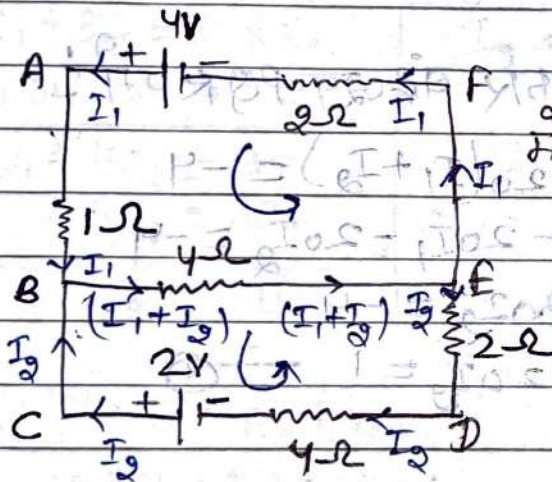 4V
A + - F
I₁ 2Ω I₁
I₁
1Ω
I₁ 4Ω
B E
(I₁+I₂) (I₁+I₂) I₂
I₂ 2V 2Ω
+ -
C D
I₂ 4Ω I₂